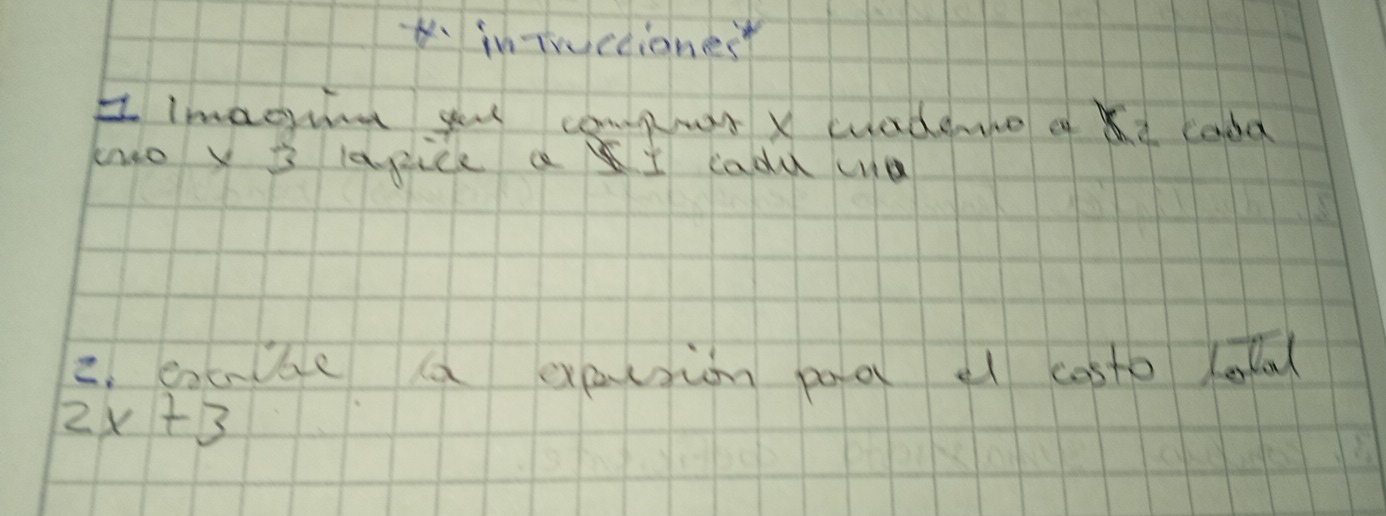 *. intrucciones*
1 imagina que compras x cuaderno a $2 cada
uno y 3 lapice a $1 cada uno
2. escribe la expresión para el costo total
2x + 3